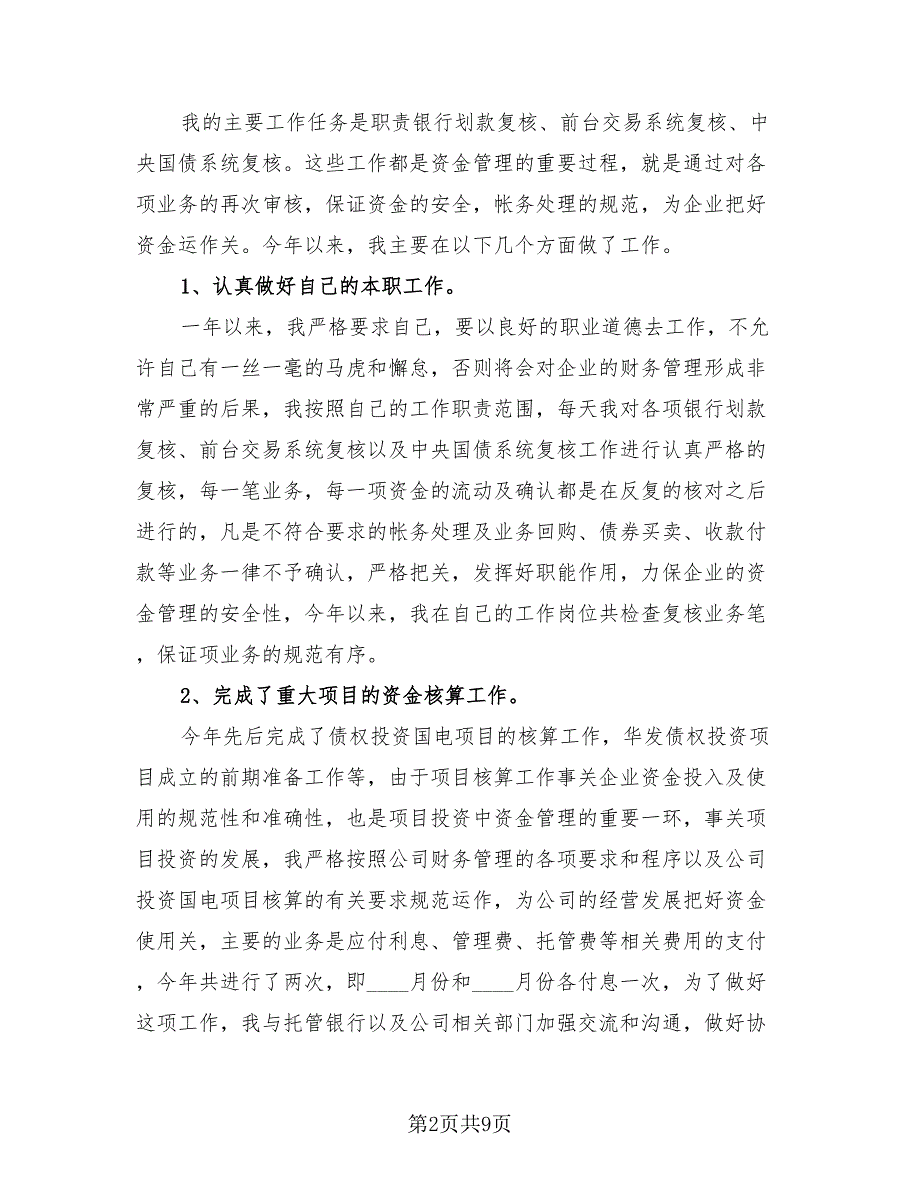 我的主要工作任务是职责银行划款复核、前台交易系统复核、中
央国债系统复核。这些工作都是资金管理的重要过程，就是通过对各
项业务的再次审核，保证资金的安全，帐务处理的规范，为企业把好
资金运作关。今年以来，我主要在以下几个方面做了工作。
1、认真做好自己的本职工作。
一年以来，我严格要求自己，要以良好的职业道德去工作，不允
许自己有一丝一毫的马虎和懈怠，否则将会对企业的财务管理形成非
常严重的后果，我按照自己的工作职责范围，每天我对各项银行划款
复核、前台交易系统复核以及中央国债系统复核工作进行认真严格的
复核，每一笔业务，每一项资金的流动及确认都是在反复的核对之后
进行的，凡是不符合要求的帐务处理及业务回购、债券买卖、收款付
款等业务一律不予确认，严格把关，发挥好职能作用，力保企业的资
金管理的安全性，今年以来，我在自己的工作岗位共检查复核业务笔
，保证项业务的规范有序。
2、完成了重大项目的资金核算工作。
今年先后完成了债权投资国电项目的核算工作，华发债权投资项
目成立的前期准备工作等，由于项目核算工作事关企业资金投入及使
用的规范性和准确性，也是项目投资中资金管理的重要一环，事关项
目投资的发展，我严格按照公司财务管理的各项要求和程序以及公司
投资国电项目核算的有关要求规范运作，为公司的经营发展把好资金
使用关，主要的业务是应付利息、管理费、托管费等相关费用的支付
，今年共进行了两次，即____月份和____月份各付息一次，为了做好
这项工作，我与托管银行以及公司相关部门加强交流和沟通，做好协
第2页共9页